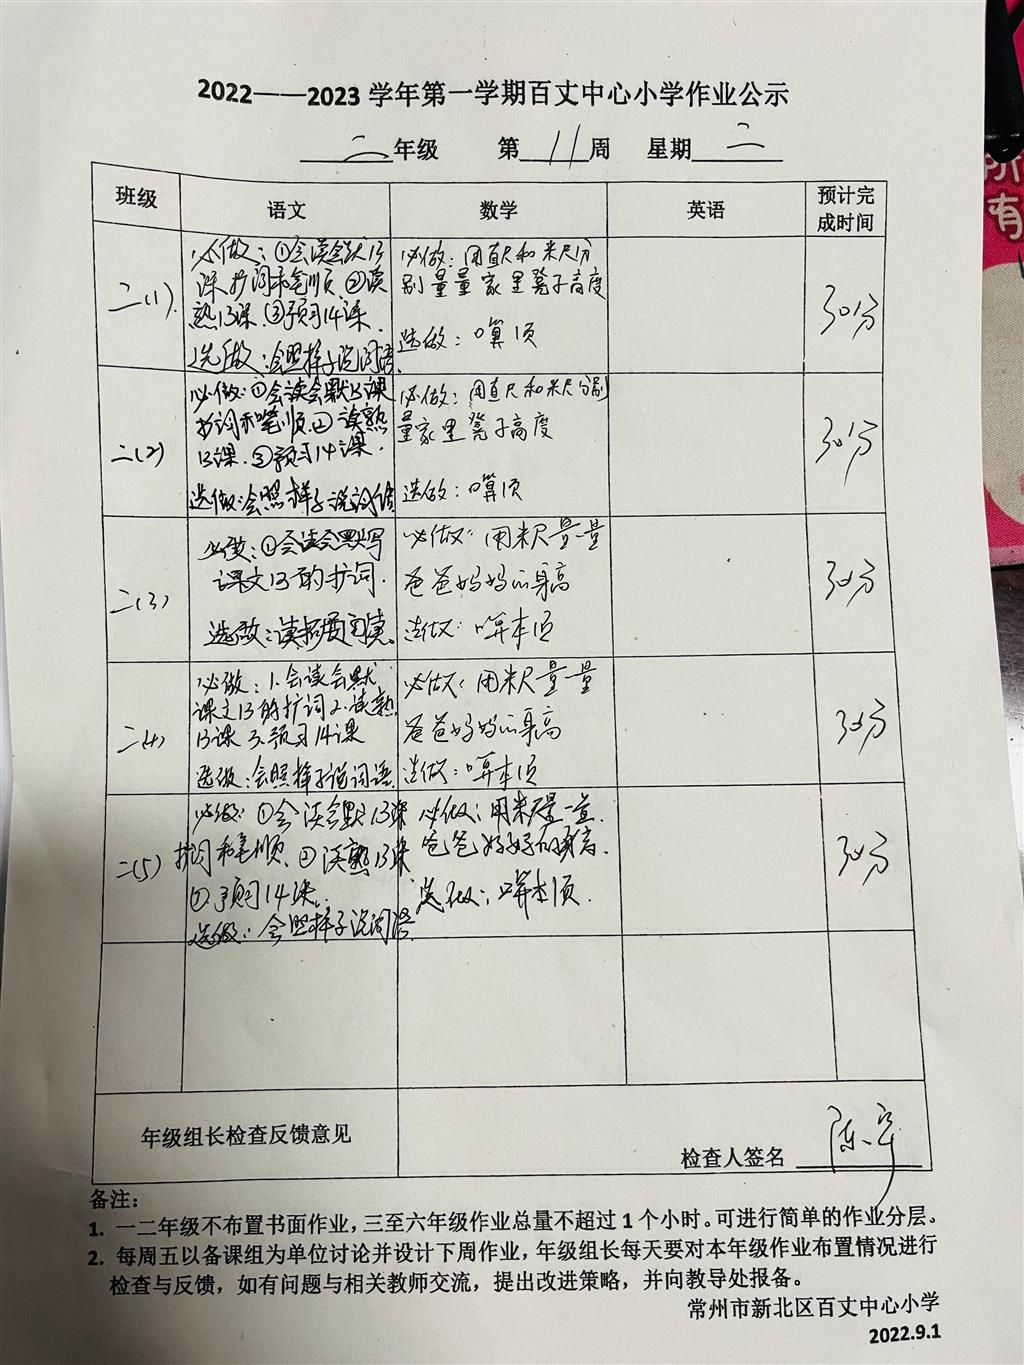 2022——2023 学年第一学期百丈中心小学作业公示
二年级 第11周 星期二
班级 语文 数学 英语 预计完
成时间
二(1)
必做：①会读会默13
课扩词和笔顺.②读
熟13课.③预习14课.
选做：会照样子说词语.
必做：用直尺和米尺分
别量量家里凳子高度
选做：口算1页
30分
二(2)
必做：①会读会默13课
扩词和笔顺.②读熟
13课.③预习14课.
选做：会照样子说词语
必做：用直尺和米尺分别
量家里凳子高度
选做：口算1页
30分
二(3)
必做：①会读会默写
课文13的扩词.
选做：读拓展阅读.
必做：用米尺量一量
爸爸妈妈的身高
选做：口算本1页
30分
二(4)
必做：1.会读会默
课文13的扩词2.读熟
13课 3.预习14课
选做：会照样子说词语
必做：用米尺量一量
爸爸妈妈的身高
选做：口算本1页
30分
二(5)
必做：①会读会默13课
扩词和笔顺.②读熟13课
③预习14课.
选做：会照样子说词语
必做：用米尺量一量.
爸爸妈妈的身高.
选做：口算本1页.
30分
年级组长检查反馈意见
检查人签名
备注：
1. 一二年级不布置书面作业，三至六年级作业总量不超过 1 个小时。可进行简单的作业分层。
2. 每周五以备课组为单位讨论并设计下周作业，年级组长每天要对本年级作业布置情况进行
检查与反馈，如有问题与相关教师交流，提出改进策略，并向教导处报备。
常州市新北区百丈中心小学
2022.9.1
所
有